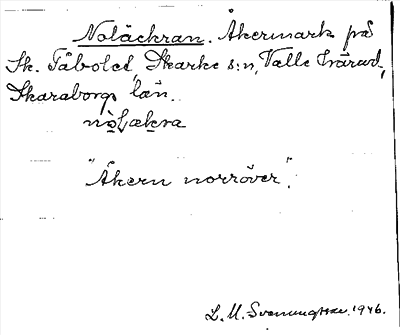 Noläckran. Åkermark på
St. Täbolet, Skarke s:n, Valle härad,
Skaraborgs län.
nòlækra
"Åkern norröver".
L. M. Svenungsson. 1946.